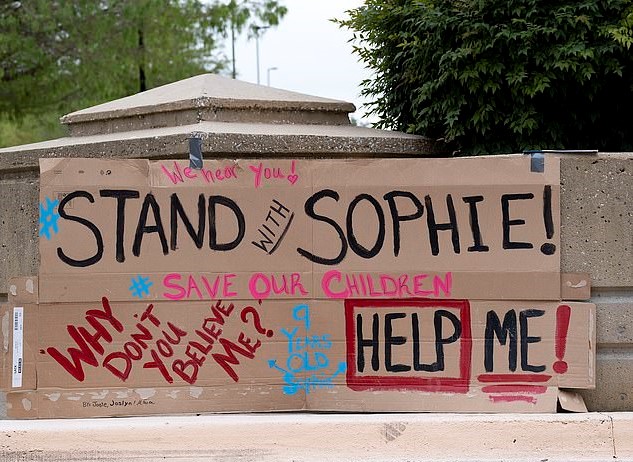 We hear you!
# STAND WITH SOPHIE!
# SAVE OUR CHILDREN
"WHY DON'T YOU BELIEVE ME?"
9 YEARS OLD
HELP ME!
By: Jade, Joslyn